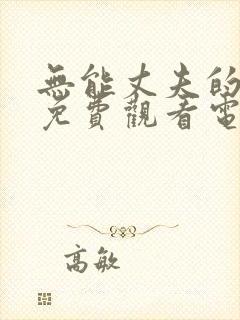 無能丈夫的
免費觀看電
高敏